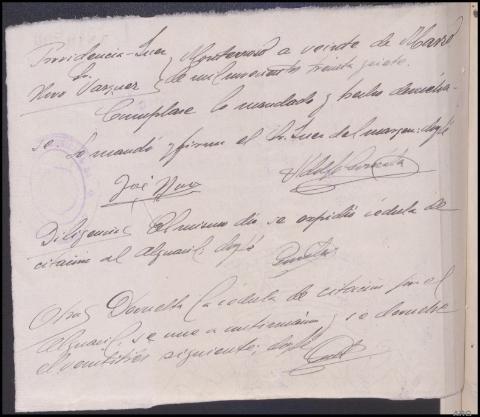 Providencia Juez
Sr.
Novo Vazquez
Monterroso a veinte de Marzo
de mil novecientos treinta y siete.
Cumplase lo mandado y hecho devuelva-
se. Lo mandó y firma el Sr. Juez del margen: doyfé
José Novo
Diligencia/ El mismo dia se expidió cedula de
citacion al Alguacil; doyfé
Otra/ Devuelta la cedula de citación por el
Alguacil se une a continuación y se devuelve
el siguiente; doyfé